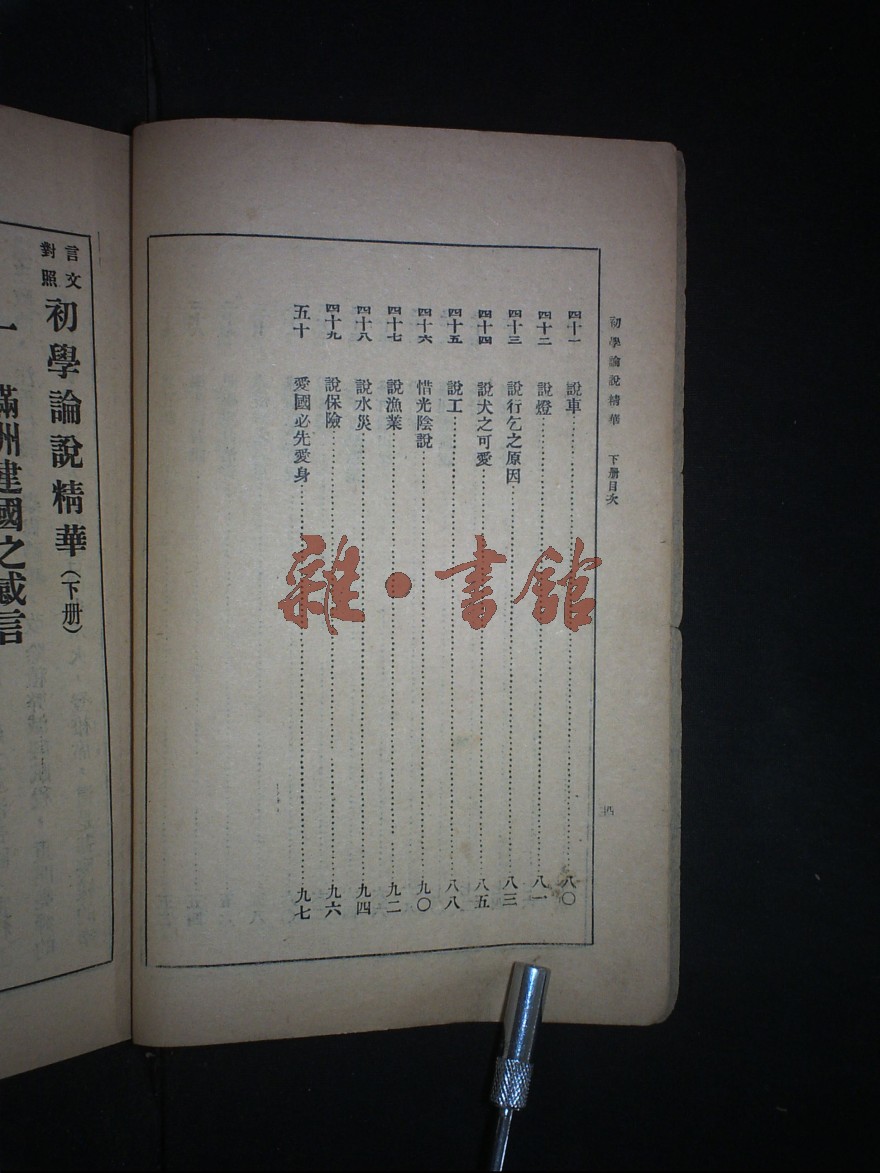 初學論說精華　下册目次
四十一　說車……八〇
四十二　說燈……八一
四十三　說行乞之原因……八三
四十四　說犬之可愛……八五
四十五　說工……八八
四十六　惜光陰說……九〇
四十七　說漁業……九二
四十八　說水災……九四
四十九　說保險……九六
五十　愛國必先愛身……九七
四
言文對照 初學論說精華（下册）
一　滿洲建國之感言
雜·書館